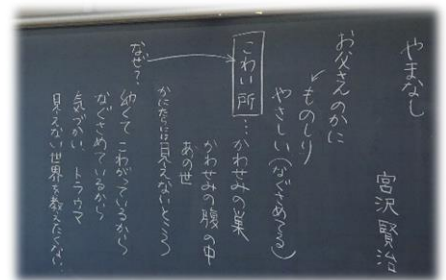 やまなし
宮沢賢治
お父さんのかに
ものしり
やさしい(なぐさめてる)
こわい所…かわせみの巣
かわせみの腹の中
あの世
なぜ?
かにたちには見えないところ
幼くてこわがっているから
なぐさめているから
気づかい、トラウマ
見えない世界を教えたくない。